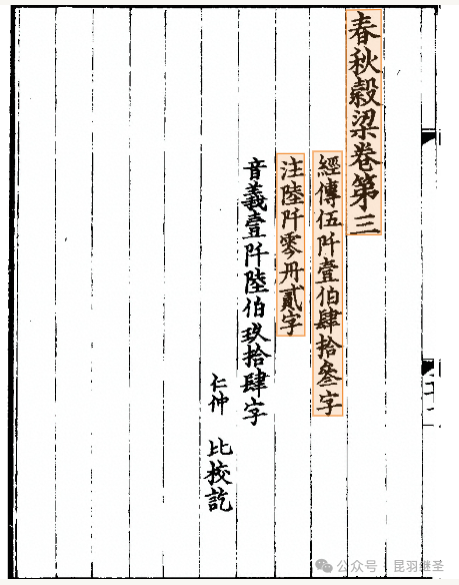 春秋穀梁卷第三
經傳伍阡壹伯肆拾叄字
注陸阡零卌貳字
音義壹阡陸伯玖拾肆字
仁仲 比校訖
公众号 · 昆羽继圣